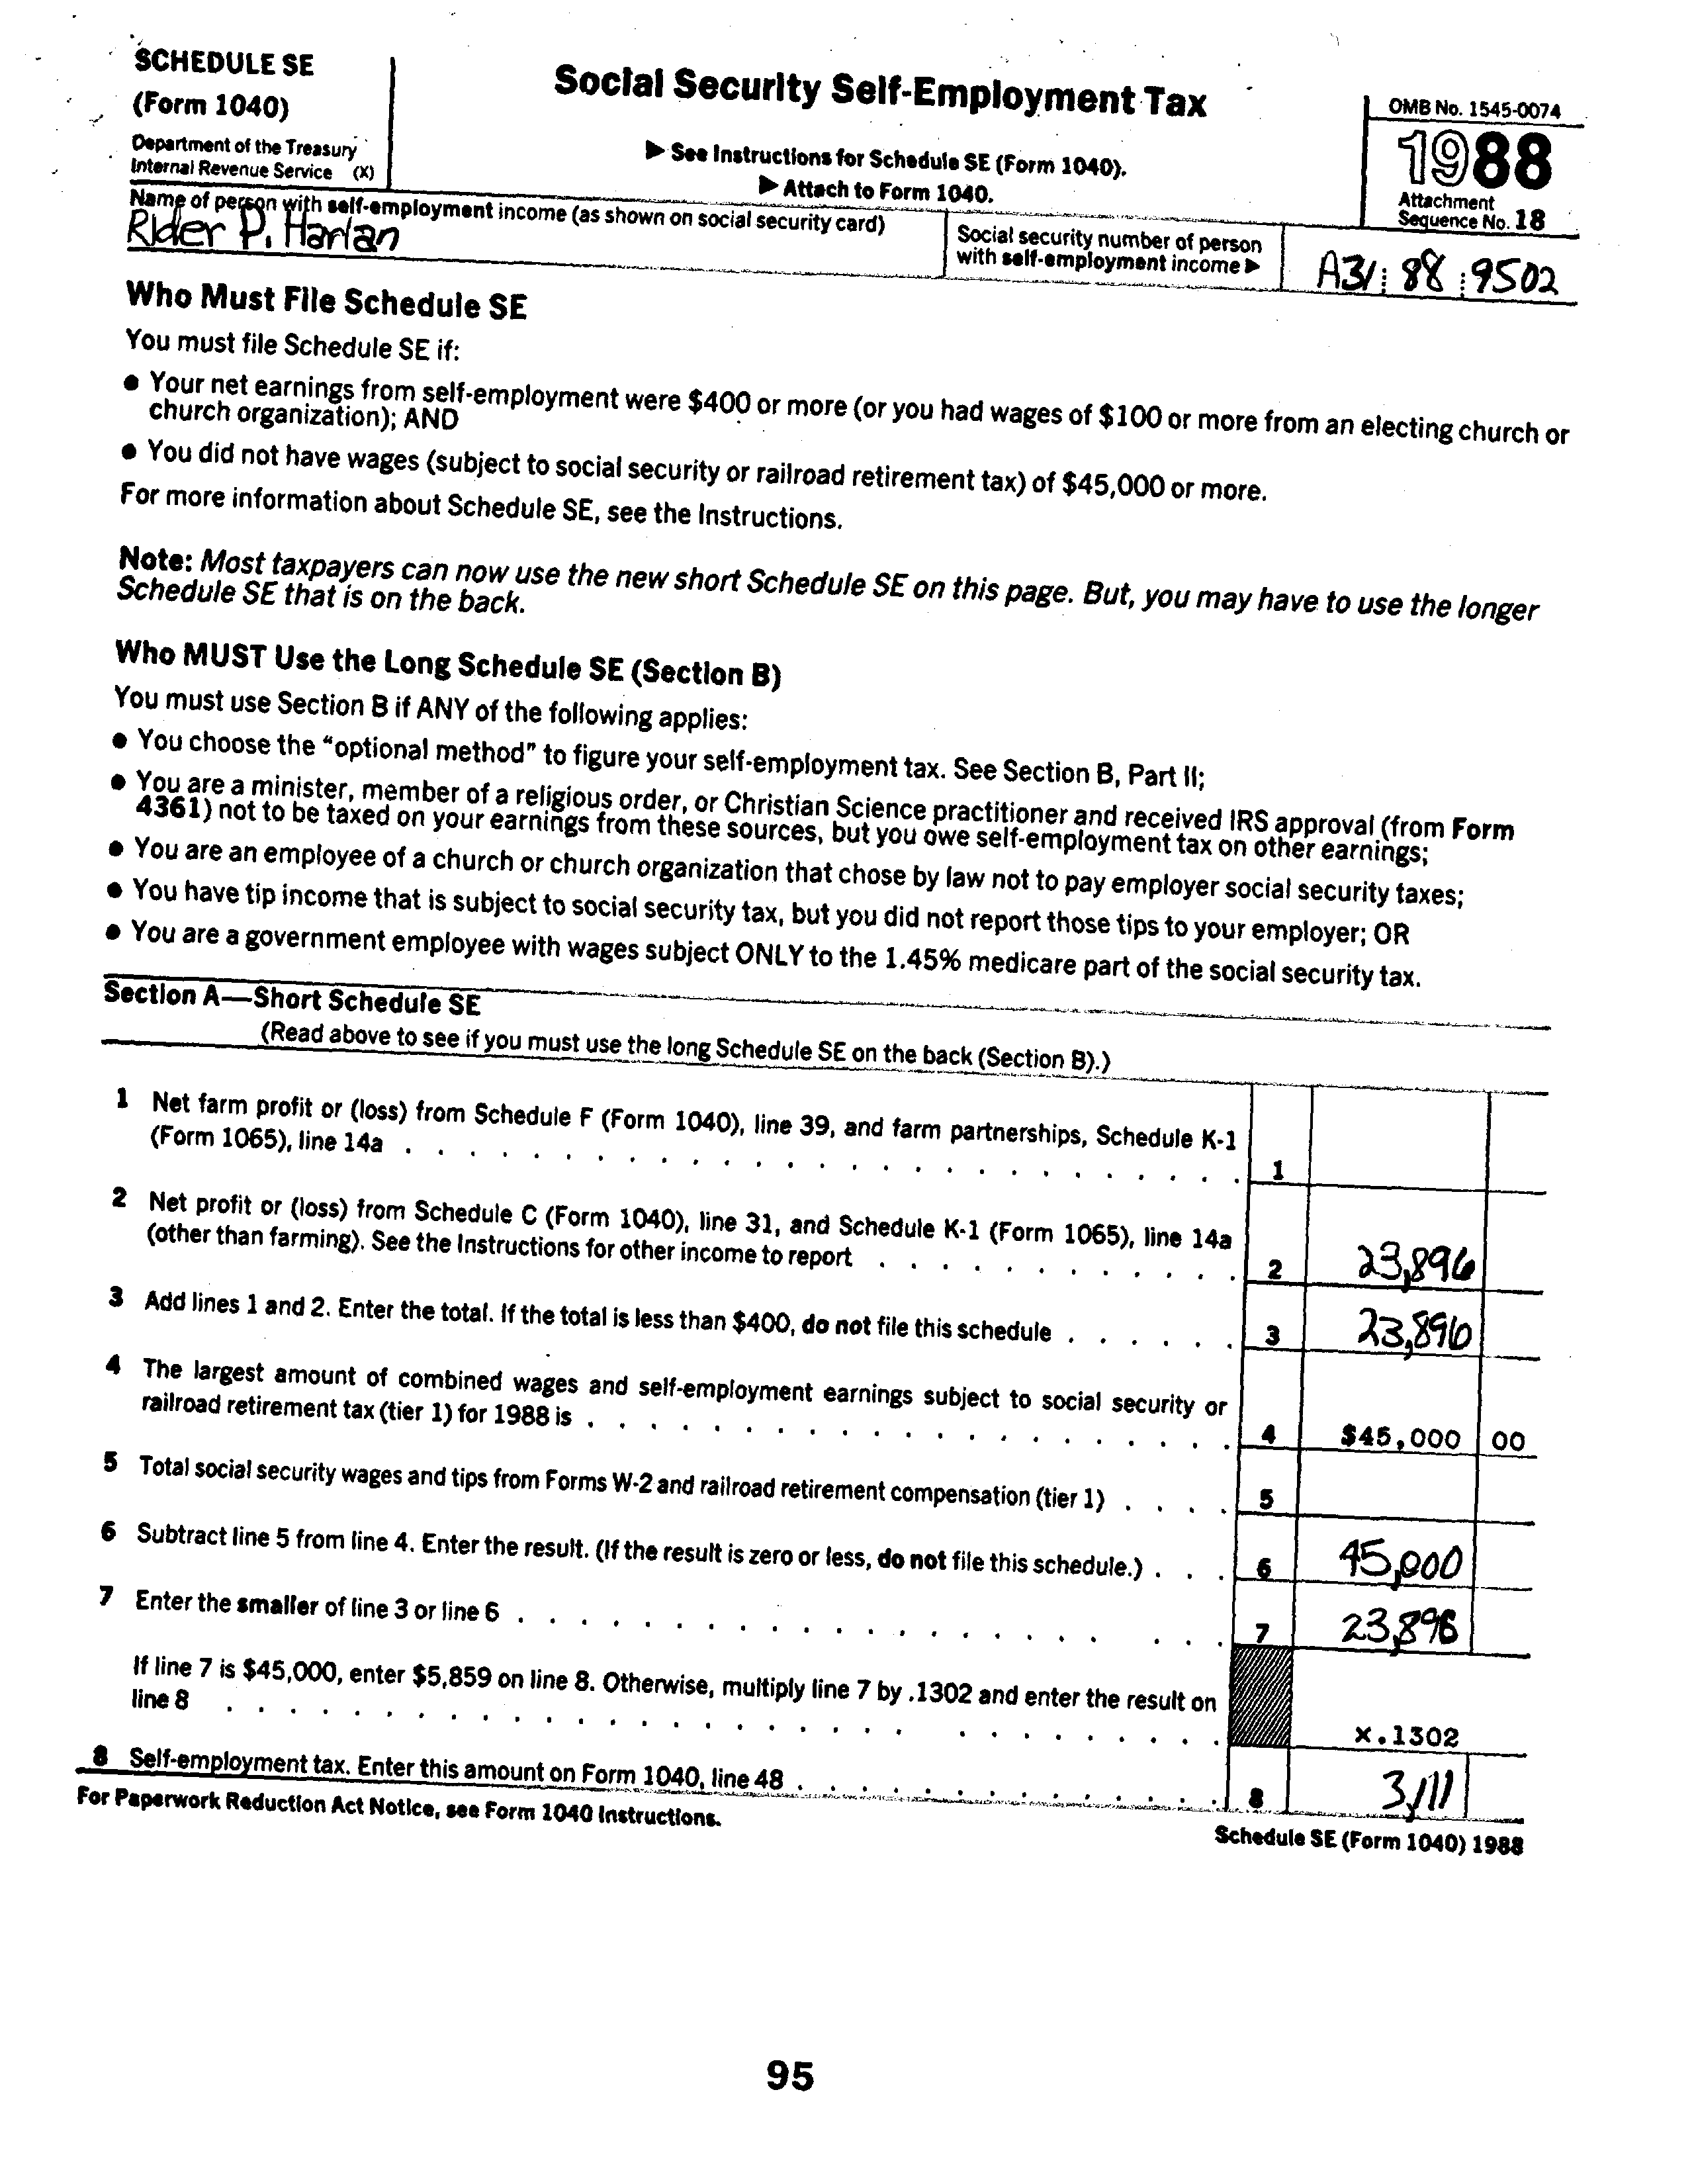 SCHEDULE SE
(Form 1040)
Department of the Treasury
Internal Revenue Service (X)
Social Security Self-Employment Tax
▶ See Instructions for Schedule SE (Form 1040).
▶ Attach to Form 1040.
OMB No. 1545-0074
1988
Attachment
Sequence No. 18
Name of person with self-employment income (as shown on social security card)
Rider P. Harlan
Social security number of person
with self-employment income ▶
A31 88 9502
Who Must File Schedule SE
You must file Schedule SE if:
● Your net earnings from self-employment were $400 or more (or you had wages of $100 or more from an electing church or
church organization); AND
● You did not have wages (subject to social security or railroad retirement tax) of $45,000 or more.
For more information about Schedule SE, see the Instructions.
Note: Most taxpayers can now use the new short Schedule SE on this page. But, you may have to use the longer
Schedule SE that is on the back.
Who MUST Use the Long Schedule SE (Section B)
You must use Section B if ANY of the following applies:
● You choose the “optional method” to figure your self-employment tax. See Section B, Part II;
● You are a minister, member of a religious order, or Christian Science practitioner and received IRS approval (from Form
4361) not to be taxed on your earnings from these sources, but you owe self-employment tax on other earnings;
● You are an employee of a church or church organization that chose by law not to pay employer social security taxes;
● You have tip income that is subject to social security tax, but you did not report those tips to your employer; OR
● You are a government employee with wages subject ONLY to the 1.45% medicare part of the social security tax.
Section A—Short Schedule SE
(Read above to see if you must use the long Schedule SE on the back (Section B).)
1 Net farm profit or (loss) from Schedule F (Form 1040), line 39, and farm partnerships, Schedule K-1
(Form 1065), line 14a . . . . . . . . . . . . . . . . . . . . . . . . . . 1
2 Net profit or (loss) from Schedule C (Form 1040), line 31, and Schedule K-1 (Form 1065), line 14a
(other than farming). See the Instructions for other income to report . . . . . . . . . . . . 2 23,896
3 Add lines 1 and 2. Enter the total. If the total is less than $400, do not file this schedule . . . . . . 3 23,896
4 The largest amount of combined wages and self-employment earnings subject to social security or
railroad retirement tax (tier 1) for 1988 is . . . . . . . . . . . . . . . . . . . . . 4 $45,000 00
5 Total social security wages and tips from Forms W-2 and railroad retirement compensation (tier 1) . . . . 5
6 Subtract line 5 from line 4. Enter the result. (If the result is zero or less, do not file this schedule.) . . . 6 45,000
7 Enter the smaller of line 3 or line 6 . . . . . . . . . . . . . . . . . . . . . . 7 23,896
If line 7 is $45,000, enter $5,859 on line 8. Otherwise, multiply line 7 by .1302 and enter the result on
line 8 . . . . . . . . . . . . . . . . . . . . . . . . . . . . . . . x.1302
8 Self-employment tax. Enter this amount on Form 1040, line 48 . . . . . . . . . . . . . . 8 3,111
For Paperwork Reduction Act Notice, see Form 1040 Instructions.
Schedule SE (Form 1040) 1988
95